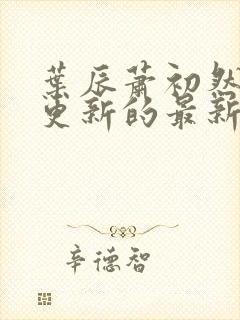 葉辰蕭初然
更新的最新
辛德智